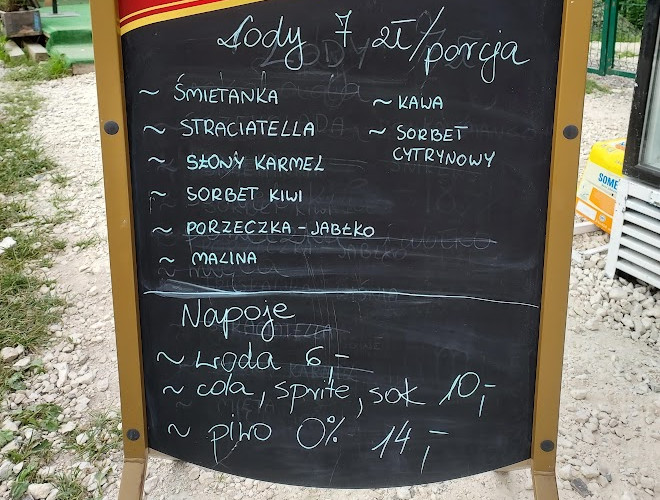 Lody 7 zł/porcja
~ ŚMIETANKA
~ STRACIATELLA
~ SŁONY KARMEL
~ SORBET KIWI
~ PORZECZKA - JABŁKO
~ MALINA
~ KAWA
~ SORBET
CYTRYNOWY
Napoje
~ woda 6,-
~ cola, sprite, sok 10,-
~ piwo 0% 14,-
SOME